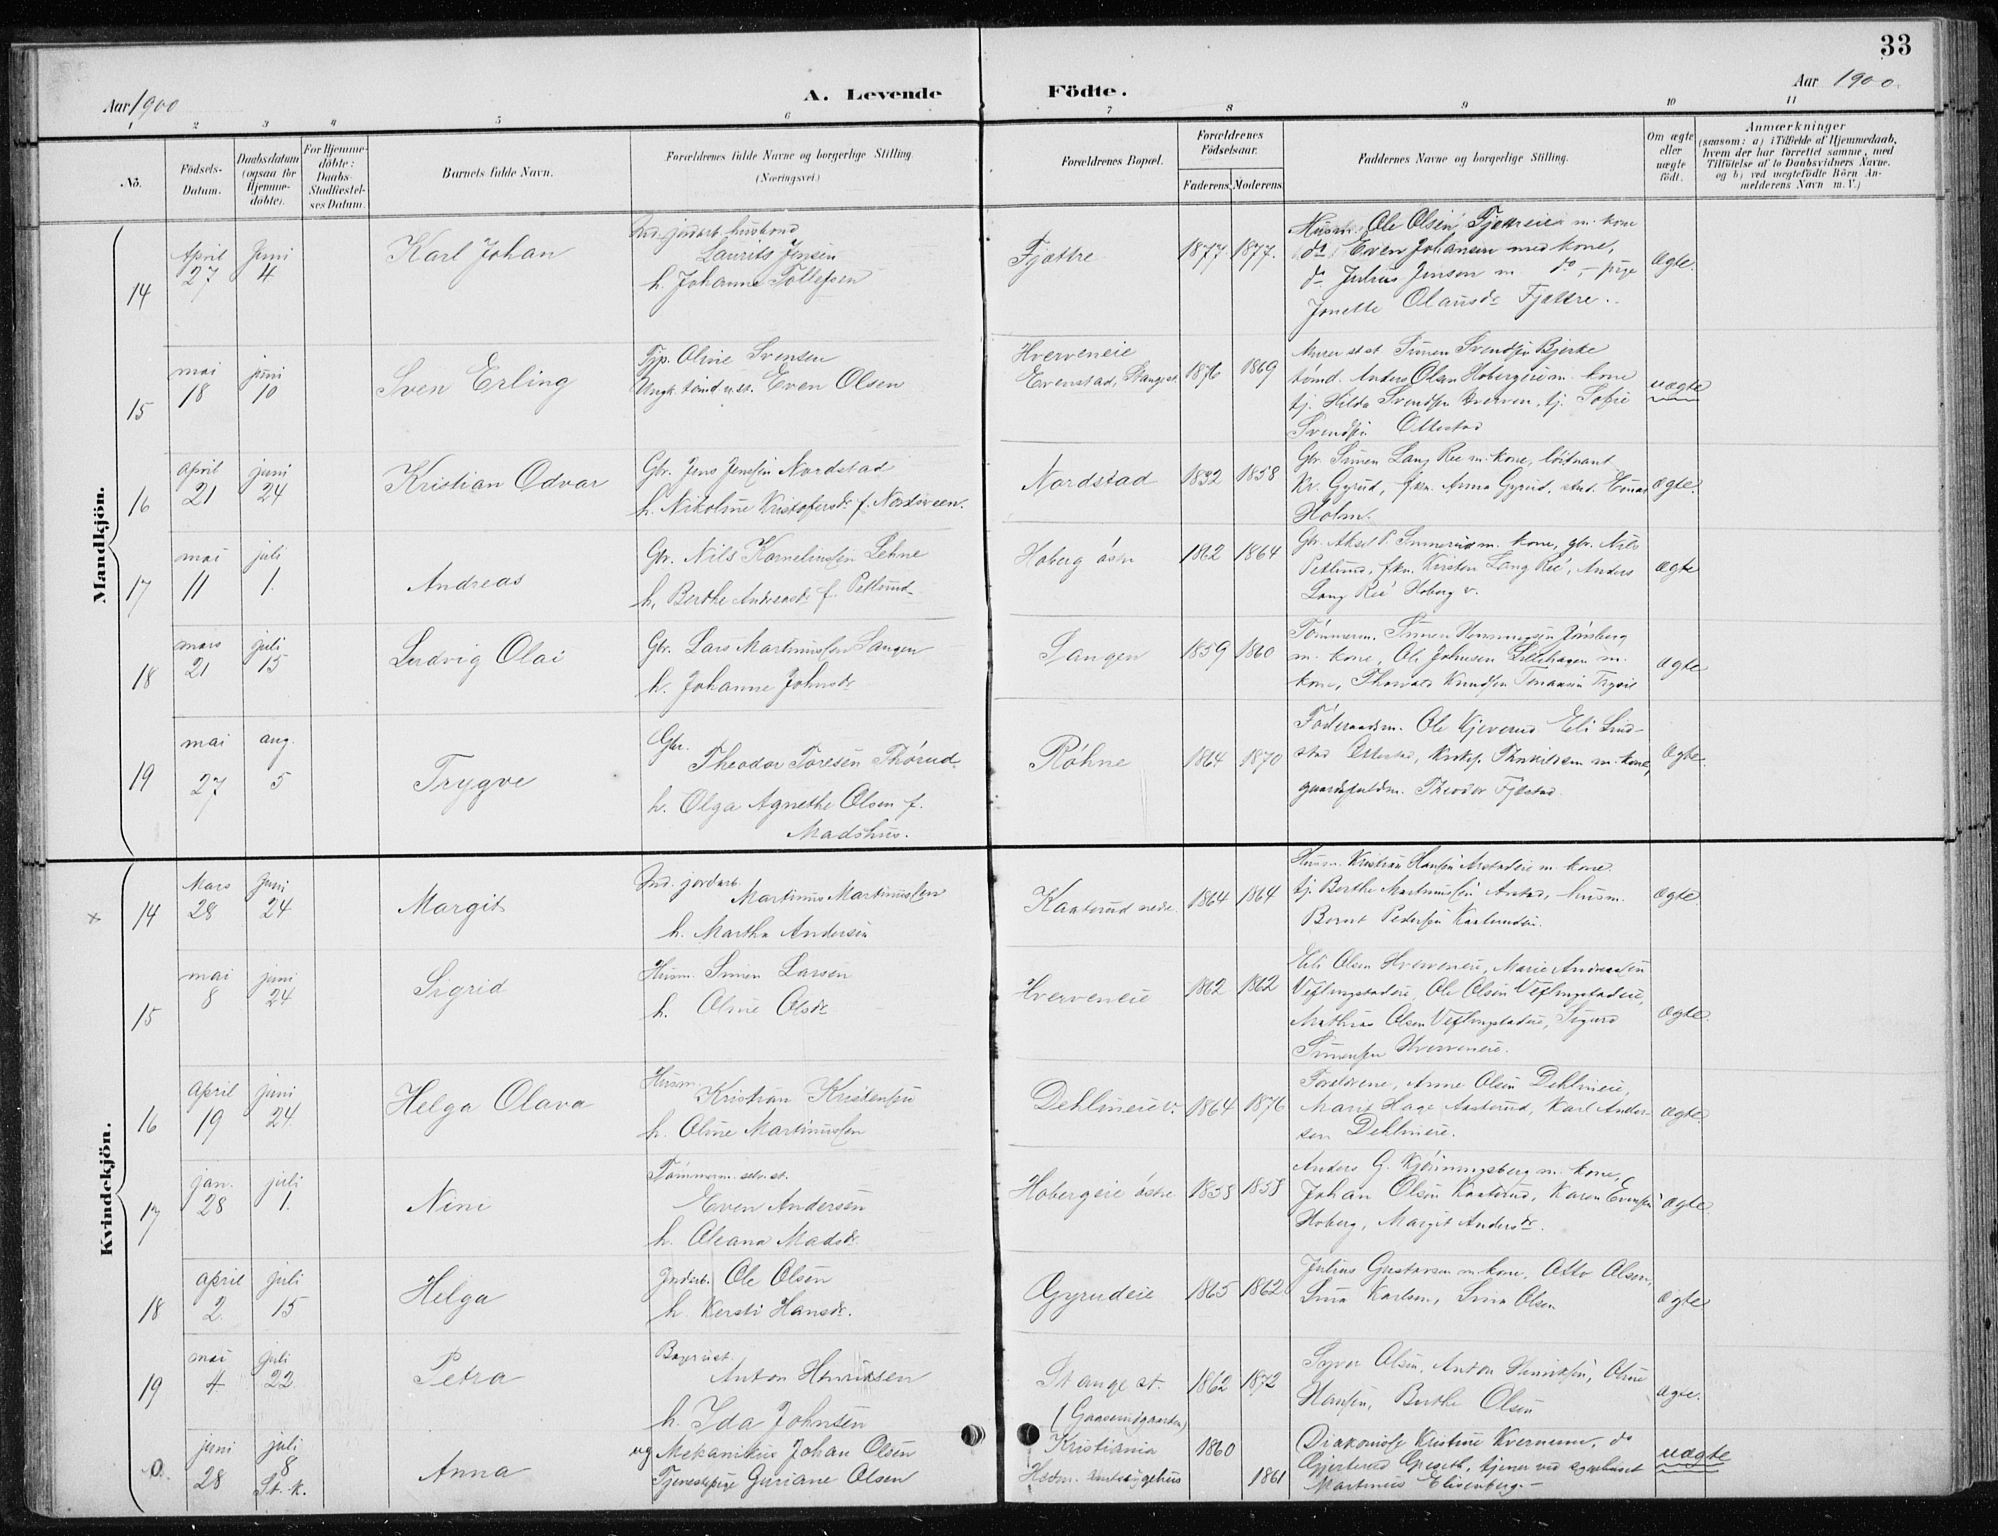 33
Aar 1900
A. Levende Födte.
Aar 1900.
1 2 3 4 5 6 7 8 9 10 11
No.
Födsels-Datum.
Daabsdatum (ogsaa for Hjemme-döbte).
For Hjemme-döbte: Daabs-Stadfæstel-ses Datum.
Barnets fulde Navn.
Forældrenes fulde Navne og borgerlige Stilling. (Næringsvei.)
Forældrenes Bopæl.
Forældrenes Födselsaar.
Faderens. Moderens.
Faddernes Navne og borgerlige Stilling.
Om ægte eller uægte födt.
Anmærkninger
(saasom: a) i Tilfælde af Hjemmedaab, hvem der har forrettet samme, med Tilföielse af to Daabsvidners Navne. og b) ved uægtefödte Börn Anmelderens Navn m. V.)
Mandkjön.
14
April 27
Juni 4
Karl Johan
Ind. jordarb. husbond
Laurits Jensen
h. Johanne Tollefsen
Fjættre
1877 1877.
Husm. Ole Olsen Fjættreeie m. kone
do Even Johansen med kone,
do Julius Jensen m do, pige
Jonette Olausdr Fjættre.
Ægte.
15
mai 18
juni 10
Sven Erling
Tjp. Oline Svensen
Ungk. tømd. u.st. Even Olsen
Hverveneie
Evenstad, Stange st.
1876 1869
Murer st.st. Simen Svendsen Bjerke
tømd. Anders Olsen Hobergeie m. kone
tj. Hilda Svendsen Hverven, tj. Sofie
Svendsen Ottestad
uægte
16
april 21
juni 24
Kristian Odvar
Gbr. Jens Jensen Nordstad
h. Nikoline Kristofersdr f. Nordsveen.
Nordstad
1832 1858
Gbr. Simen Lang Ree m. kone, löitnant
Kr. Gyrud, fkn. Anna Gyrud, stud. Einar
Holm.
Ægte.
17
mai 11
juli 1.
Andreas
Gbr. Nils Korneliussen Lehne
h. Berthe Andreasdr f. Petlund
Hoberg östre
1862 1864
Gbr. Aksel P. m. kone, gbr. Nils
Petlund, fkn. Kirsten Lang Ree, Anders
Lang Ree Hoberg v.
Ægte
18
mars 21
juli 15
Ludvig Olai
Gbr. Lars Martinussen Sangen
h. Johanne Johnsdr
Sangen
1859 1860
Tömmerm. Simen Hemmingsen Jönsberg
m. kone, Ole Johnsen Lillehagen m.
kone, Thorvald Knudsen Trysil
Ægte
19
mai 27
aug. 5
Trygve
Gbr.
Theodor Toresen Thörud
h. Olga Agnethe Olsen f.
Madshus.
Röhne
1864 1870
Föderaadsm. Ole Kjeverud Eli Lund-
stad Ottestad, m. kone,
Theodor Fjelstad
Ægte.
Kvindekjön.
x
14
Mars 28
Juni 24
Margit
Ind. jordarb.
Martinus Martinussen
h. Martha Andersen
Kaaterud nedr.
1864 1864
Husm. Kristian Hansen Arstadeie m. kone
tj. Berthe Martinussen Arstad, husm.
Bernt Pedersen Kaaterudeie.
Ægte.
15
mai 8
juni 24
Sigrid
Husm. Simen Larsen
h. Oline Olsdr
Hverveneie
1862 1862
Eli Olsen Hverveneie, Marie Andreassen
Veflingstadeie, Ole Olsen Veflingstadeie,
Mathias Olsen Veflingstadeie, Sigurd
Simensen Hverveneie.
Ægte.
16
april 19
juni 24
Helga Olava
Husm.
Kristian Kristensen
h. Oline Martinussen
Dehlineie v.
1864 1876
Forældrene, Anne Olsen Dehlineie,
Marit Hage Aasterud, Karl Ander-
sen Dehlineie.
Ægte.
17
jan. 28
juli 1.
Nini
Tömmerm. selv.st.
Even Andersen
h. Oleana Madsdr.
Hobergeie östre
1858 1858
Anders G. Kjönningsberg m. kone,
Johan Olsen Kaaterud, Karen Evensen
Hoberg, Margit Andersdr.
Ægte.
18
april 2.
juli 15
Helga
Jordarb. Ole Olsen
h. Kersti Hansdr.
Gyrudeie
1865 1862
Julius Gustavsen m. kone, Otto Olsen,
Lina Karlsen, Lina Olsen
Ægte
19
mai 4
juli 22
Petra
Anton Henriksen
h. Ida Johnsen
Stange st.
(Gaaserudgaarden)
1862 1872
Syver Olsen, Anton Henriksen, Oline
Hansen, Berthe Olsen
Ægte.
0.
juni 28
juli 8
St. k.
Anna
ug Mekanikus Johan Olsen
Tjenestepige Guriane Olsen
Kristiania
Hedm. amtssygehus
1860
1861
Diakonisse Kristine Kvernmo, do
tjener ved sygehuset
Martinius Elisenberg.
uægte